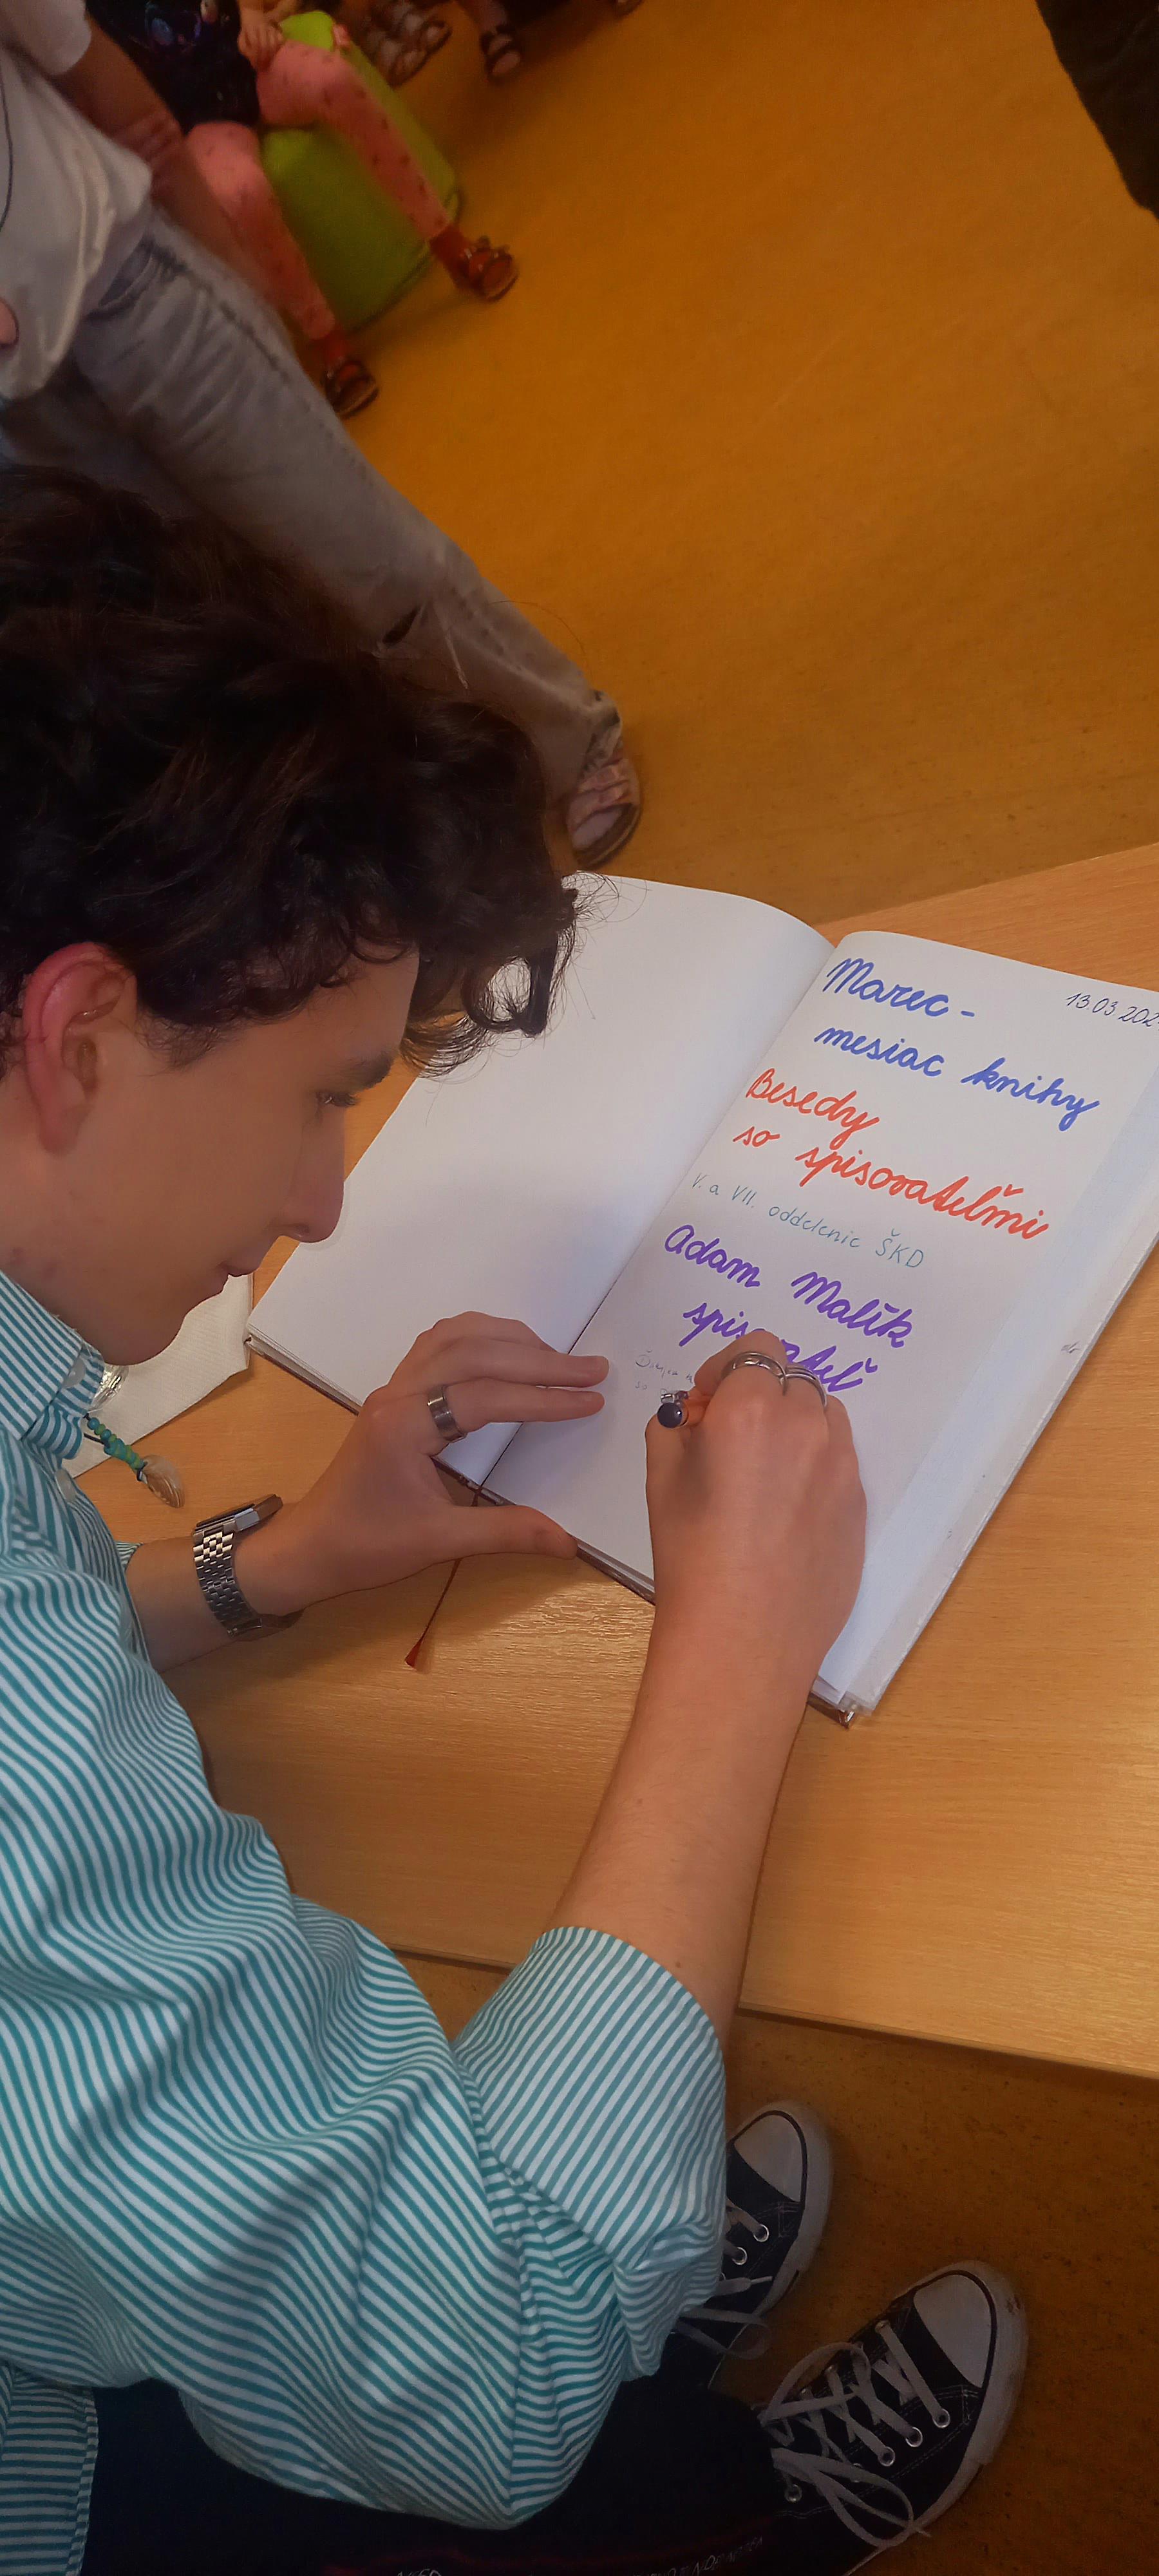 13.03.202
Marec -
mesiac knihy
Besedy
so spisovateľmi
V. a VII. oddelenie ŠKD
Adam Malík
spisovateľ